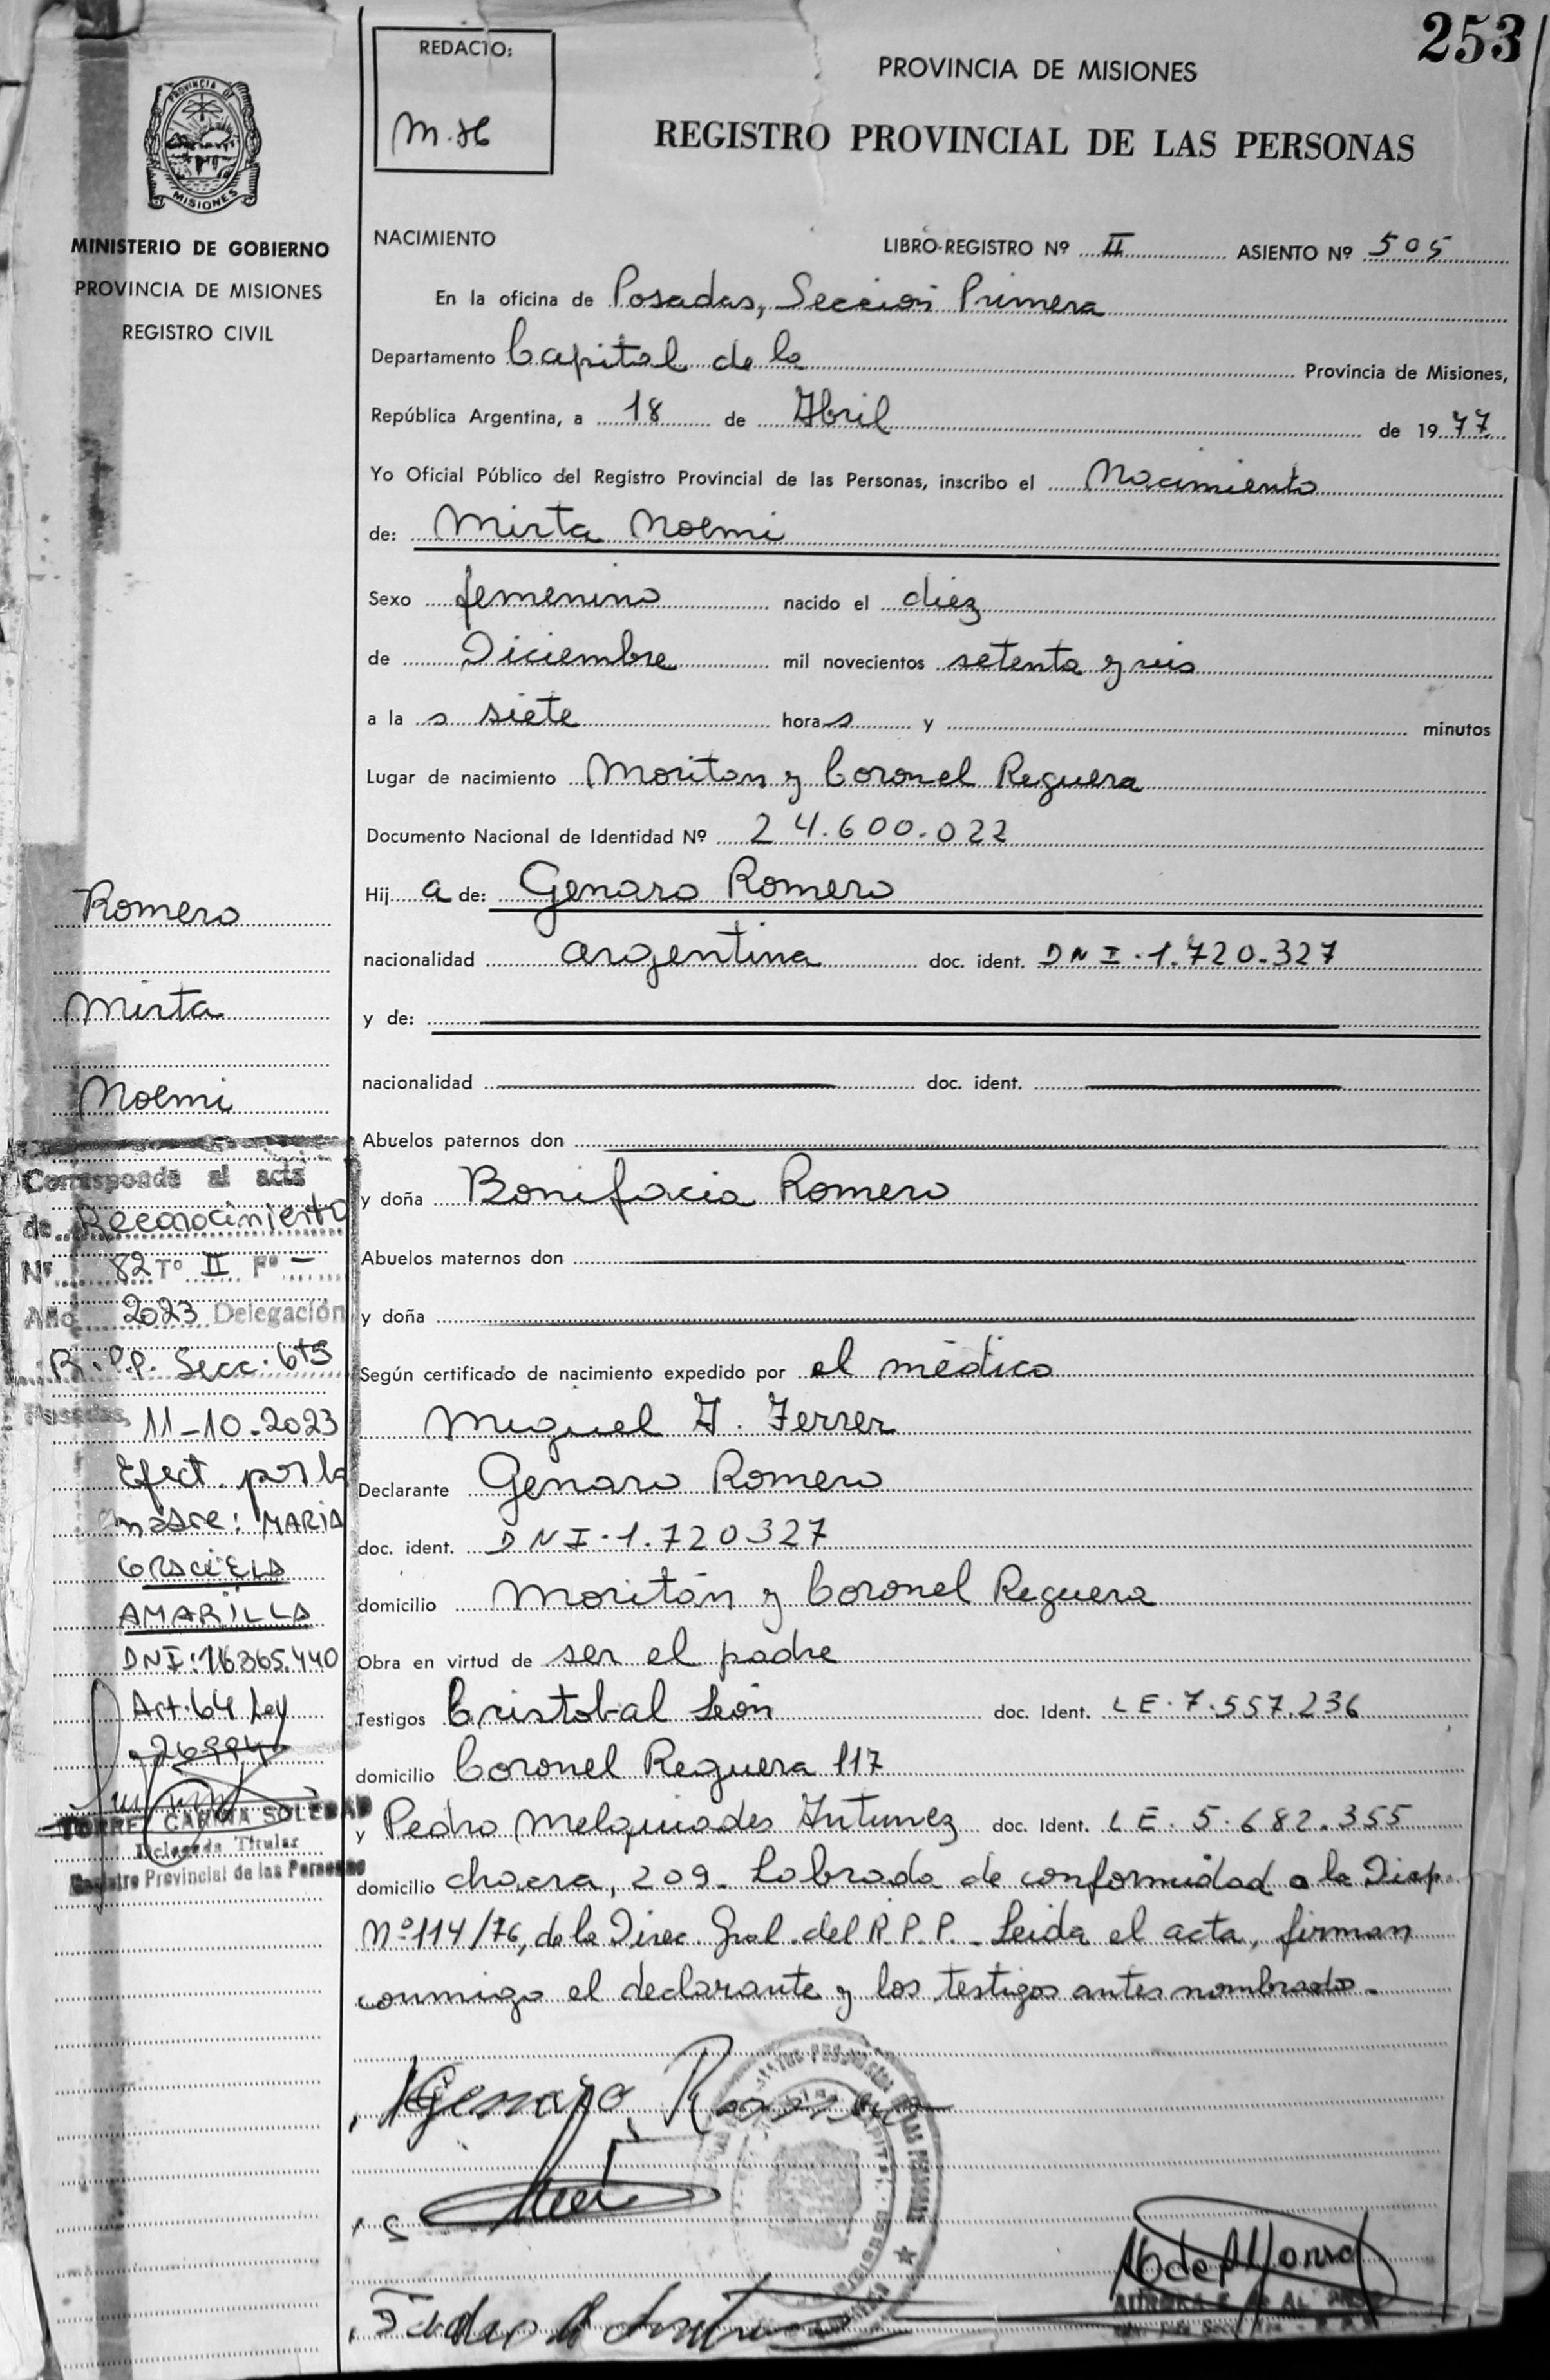 253
REDACTO:
M.H
PROVINCIA DE MISIONES
REGISTRO PROVINCIAL DE LAS PERSONAS
PROVINCIA DE
MISIONES
MINISTERIO DE GOBIERNO
PROVINCIA DE MISIONES
REGISTRO CIVIL
NACIMIENTO LIBRO-REGISTRO Nº II ASIENTO Nº 505
En la oficina de Posadas, Sección Primera
Departamento Capital de la Provincia de Misiones,
República Argentina, a 18 de Abril de 1977
Yo Oficial Público del Registro Provincial de las Personas, inscribo el Nacimiento
de: Mirta Noemi
Sexo femenino nacido el diez
de Diciembre mil novecientos setenta y seis
a la s siete hora s y minutos
Lugar de nacimiento Moritan y Coronel Reguera
Documento Nacional de Identidad Nº 24.600.022
Hij a de: Genaro Romero
nacionalidad argentina doc. ident. DNI.1.720.327
y de:
nacionalidad doc. ident.
Abuelos paternos don
y doña Bonifacia Romero
Abuelos maternos don
y doña
Según certificado de nacimiento expedido por el médico
Miguel A. Ferrer
Declarante Genaro Romero
doc. ident. DNI.1.720327
domicilio Moritán y Coronel Reguera
Obra en virtud de ser el padre
Testigos Cristobal León doc. Ident. LE.7.557.236
domicilio Coronel Reguera 117
y Pedro Melquiades Antunez doc. Ident. LE.5.682.355
domicilio chacra, 209. Labrada de conformidad a la Disp.
Nº 114/76, de la Direc. Gral. del R.P.P. Leida el acta, firman
conmigo el declarante y los testigos antes nombrado.
Romero
Mirta
Noemi
Corresponde al acta
de Reconocimiento
Nº 82 Tº II Fº -
Año 2023 Delegación
R.P.P. Secc. 6ta
Posadas, 11-10-2023
Efect. por la
madre: MARIA
GRACIELA
AMARILLA
DNI:16365.440
Art. 64 Ley
26994
TORRE, CARINA SOLEDAD
Delegada Titular
Registro Provincial de las Personas
Genaro Romero